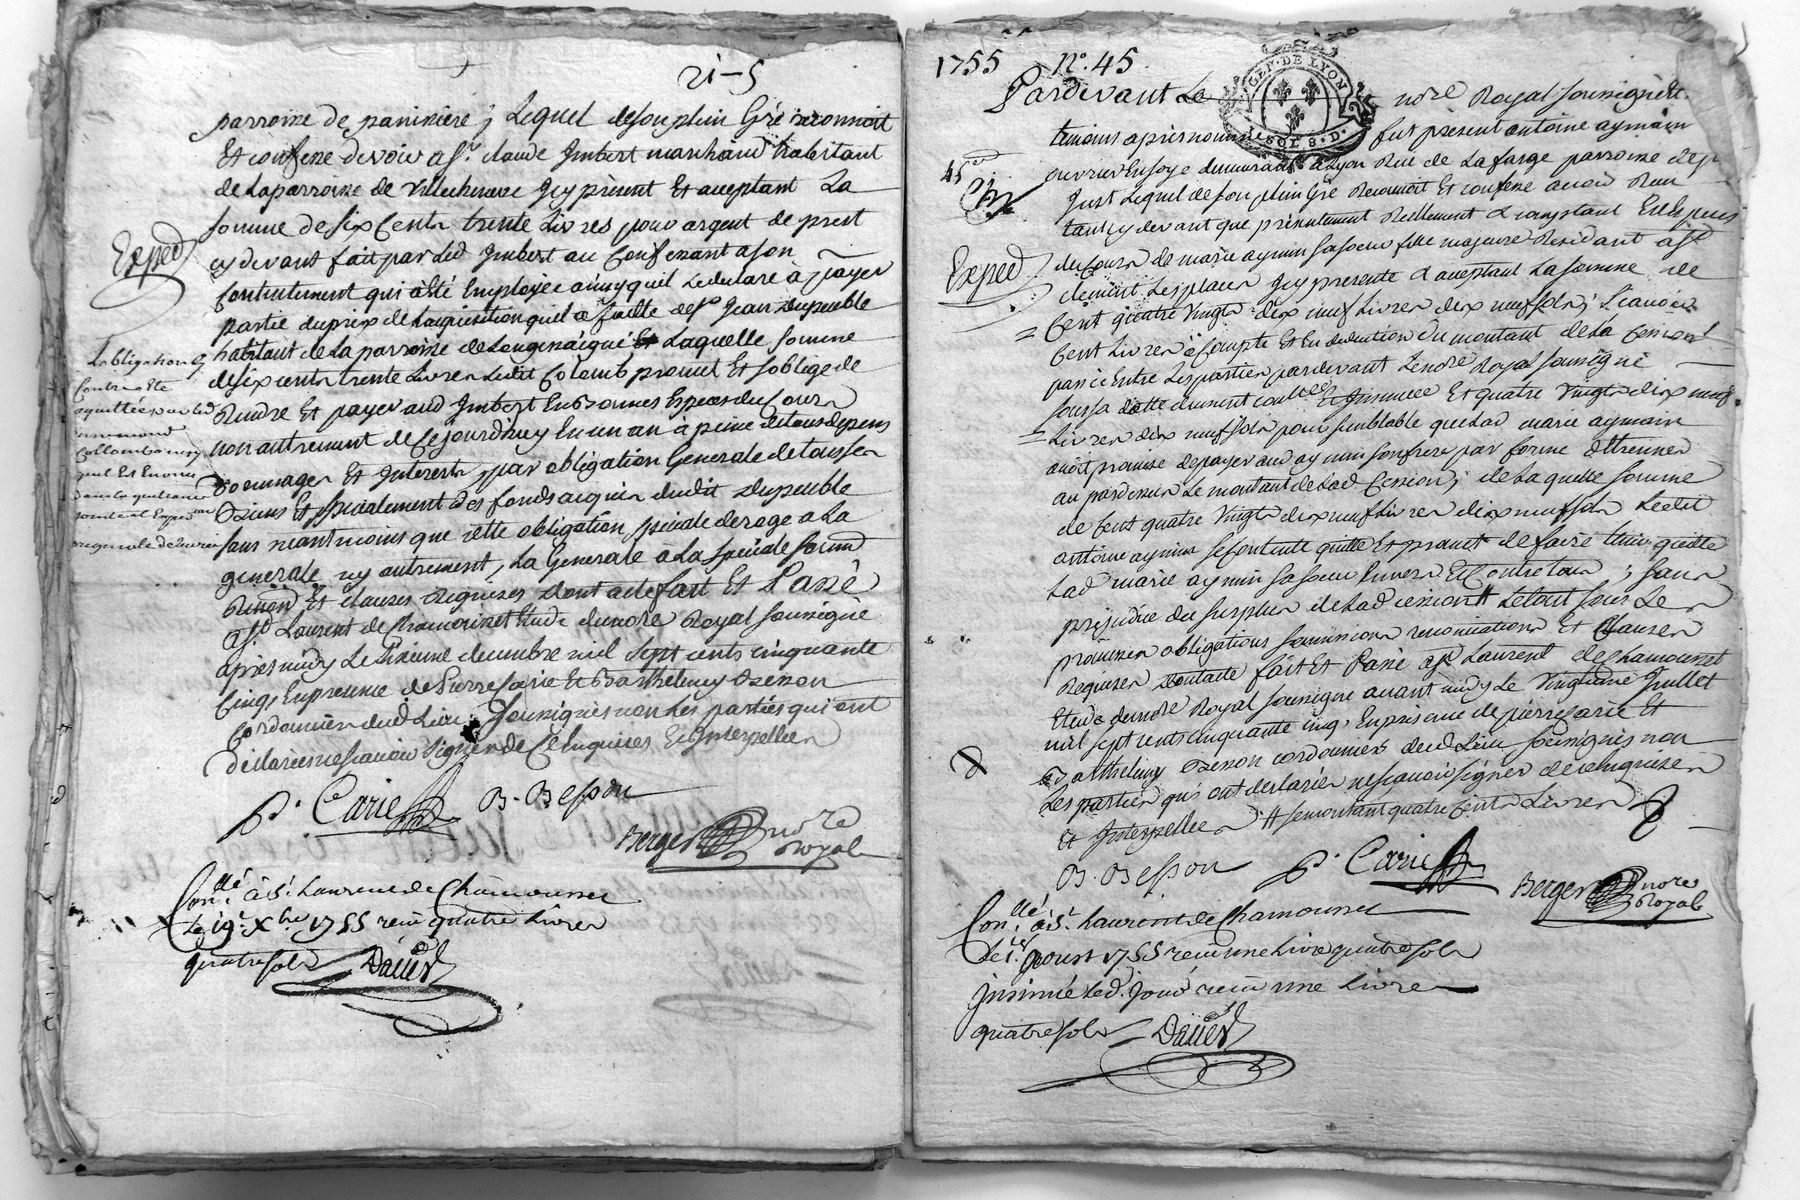 21-5
parroisse de paninière ; Lequel de son plein Gré reconnoit
Et confesse devoir a Sr. claude Imbert marchand habitant
de la parroisse de Villechenave Icy présent Et aceptant La
somme de six Cents trente Livres pour argent de prest
cy devant fait par Led Imbert au Confessant a son
Contentement qui a été Employée ainsy quil Le declare a payer
partie du prix de Laquisition quel a faitte de Jean Dupeuble
habitant de La parroisse de Longessaigne Laquelle somme
de six cents trente Livres Ledit Colomb promet Et soblige de
Rendre Et payer aud Imbert En bonnes Especes du Cours
non autrement de Ce jourdhuy En un an a peine de tous depens
Dommages Et Interests par obligation Generale de tous ses
Biens Et spécialement des fonds acquis dudit Dupeuble
sans néantmoins que cette obligation spéciale deroge a La
generale ny autrement, La Generale a La spéciale
Et clauses Requises dont acte fait Et Passé
a St Laurent de Chamousset Etude du notre Royal soussigné
après midy Le dixieme decembre mil sept cents cinquante
Cinq, En presence de Pierre Carie Et Barthelemy Besson
Cordonniers dud Lieu soussignés non Les parties qui ont
déclarées ne scavoir signer de Ce Enquises Et Interpellées
P. Carie B. Besson
Berger notre
Royal
Con.llé à St. Laurent de Chamousset
Le 19e Xbre 1755 reçu quatre Livres
quatre sols Daues
Exped
La obligation cy
Contre a été
aquittée par led
Collomb
qui Est En
1755 No. 45
GEN. DE LYON
SOL 8. D.
45e
Exped
Pardevant Le notre Royal soussigné Et
témoins après nommés fut présent antoine aymain
ouvrier En soye demeurant a Lyon Rue de La farge parroisse de St
Just Lequel de son plein Gré Reconnoit Et confesse avoir Reçu
tant cy devant que présentement Réellement Et comptant En Especes
du Cours de marie aymin sa soeur fille majeure Residant a St
Clément Les places Icy présente Et aceptant La somme de
Cent quatre Vingts dix neuf Livres dix neuf sols ; scavoir
Cent Livres à Compte Et En déduction du montant de La Cession
passée Entre Les parties pardevant Le notre Royal soussigné
sous sa datte duement Et Insinuée Et quatre Vingts dix neuf
Livres dix neuf sols pour semblable que Lad marie aymain
avoit promise de payer aud aymin son frere par forme détrennes
au par dessus Le montant de Lad Cession ; de Laquelle somme
de Cent quatre Vingts dix neuf Livres dix neuf sols Ledit
antoine aymin se contente quitte Et promet de faire tenir quitte
Lad marie aymin sa soeur Envers Et Contre tous ; sans
préjudice du surplus de Lad cession # Le tout sous Les
promesses obligations soumissions renonciations Et Clauses
Requises dont acte fait Et Passé a St Laurent de Chamousset
Etude du notre Royal soussigné avant midy Le Vingtieme Juillet
mil sept cents cinquante cinq, En présence de pierre Carie Et
Barthelemy Besson cordonniers dud Lieu soussignés non
Les parties qui ont declarées ne scavoir signer de ce enquises
Et Interpellées # se montant quatre Cents Livres
B. Besson P. Carie
Berger notre
Royal
Con.llé à St. Laurent de Chamousset
Le 1er Aoust 1755 reçu une Livre quatre sols
Insinué led. Jour reçu une Livre
quatre sols Daues